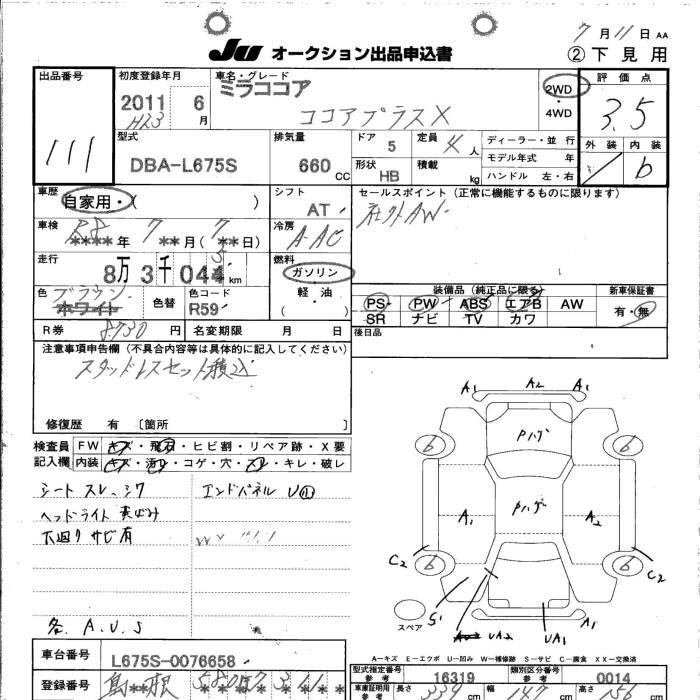 7月11日 AA
JU オークション出品申込書
②下見用
出品番号
111
初度登録年月
2011 6月
H23
車名・グレード
ミラココア
ココアプラスX
2WD
・4WD
評価点
3.5
外装 内装
b
型式
DBA-L675S
排気量
660 CC
ドア 5
定員 4人
形状 HB
積載 kg
ディーラー・並行
モデル年式 年
ハンドル 左・右
車歴
自家用・( )
シフト
AT
セールスポイント(正常に機能するものに限ります)
社外AW
車検
R8 7 7
****年 **月(**日)
冷房
A-AC
走行
8万3千044km
5
燃料
ガソリン
軽・油
( )
色
ブラウン
ホワイト
色替
色コード
R59
装備品(純正品に限る)
PS PW ABS エアB AW
SR ナビ TV カワ
新車保証書
有・無
R券 8730円
名変期限 月 日
後日品
注意事項申告欄(不具合内容等は具体的に記入してください)
スタッドレスセット積込
修復歴 有 〔箇所 〕
検査員記入欄
FW キズ・飛石・ヒビ割・リペア跡・X要
内装 キズ・汚レ・コゲ・穴・スレ・キレ・破レ
シート スレ、シワ
エンドパネル U小
ヘッドライト 黄ばみ
下廻り サビ有
各 A.U.S
A1 A2 A1
Pハゲ
6 6
Pハゲ
A1 A2
C2 C2
6 6
S1
UA2 UA1 A1
スペア
A-キズ E-エクボ U-凹み W-補修跡 S-サビ C-腐食 XX-交換済
車台番号
L675S-0076658
型式指定番号 参考 16319
類別区分番号 参考 0014
登録番号
島**根 580
車車証明用 参考
長さ 339 cm
幅 147 cm
高さ 156 cm